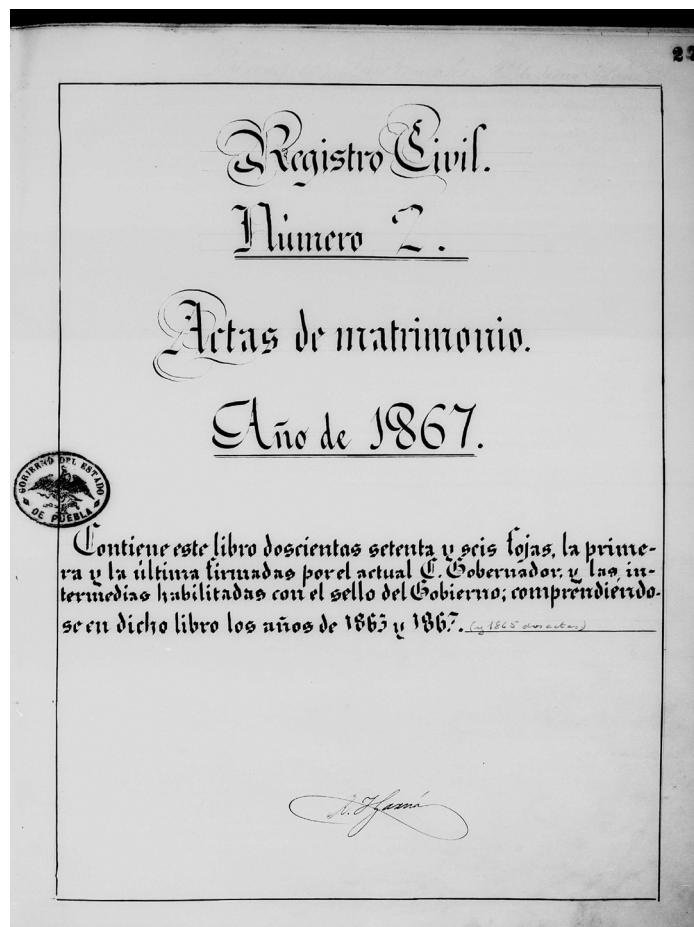 23
Registro Civil.
Número 2.
Actas de matrimonio.
Año de 1867.
GOBIERNO DEL ESTADO
DE PUEBLA
Contiene este libro doscientas setenta y seis fojas, la prime-
ra y la última firmadas por el actual C. Gobernador, y las in-
termedias habilitadas con el sello del Gobierno; comprendiendo-
se en dicho libro los años de 1863 y 1867. (y 1865 dos actas)